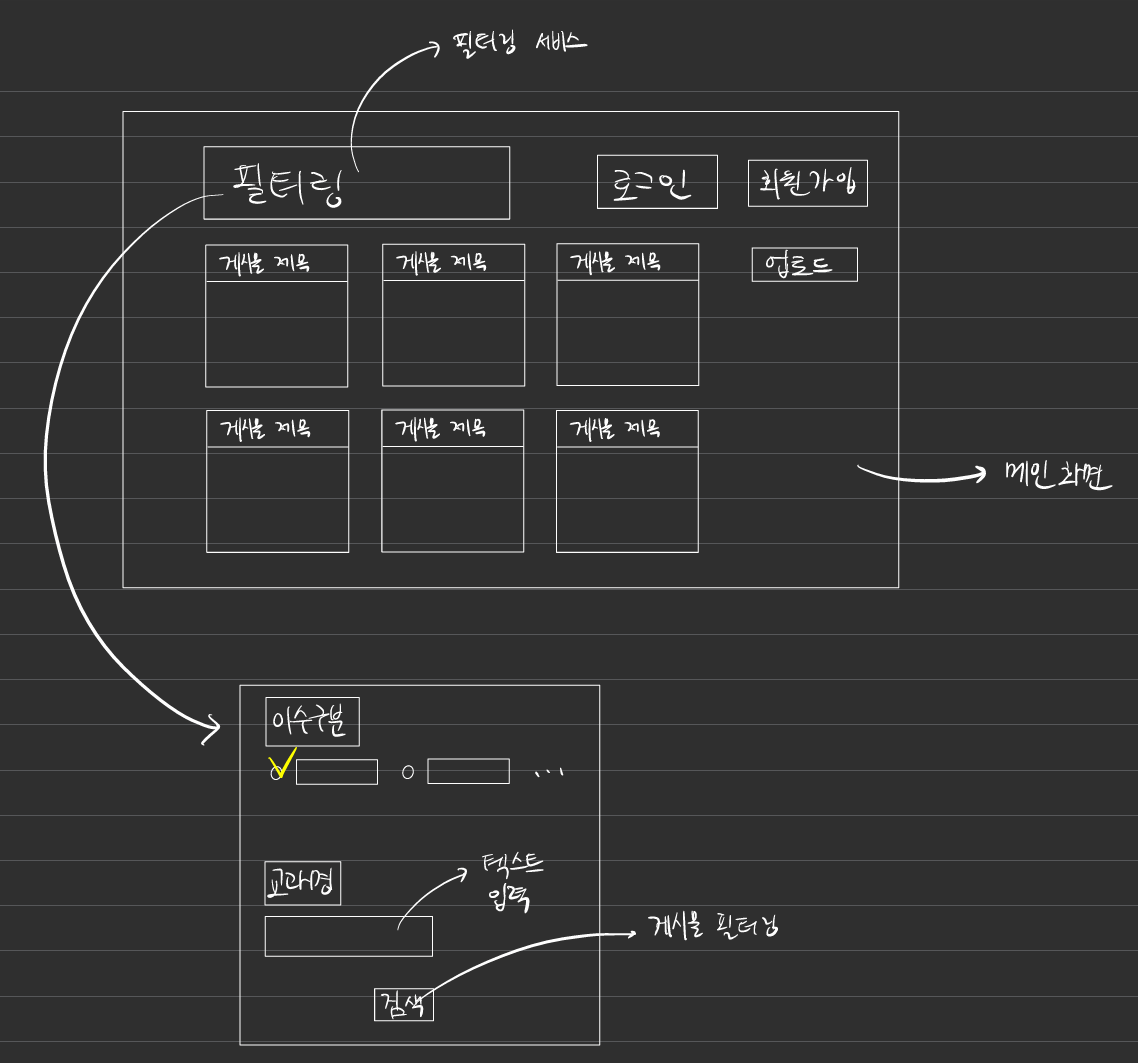 필터링 서비스
필터링
로그인
회원가입
게시물 제목
게시물 제목
게시물 제목
업로드
게시물 제목
게시물 제목
게시물 제목
메인 화면
이수구분
...
교과명
텍스트
입력
게시물 필터링
검색